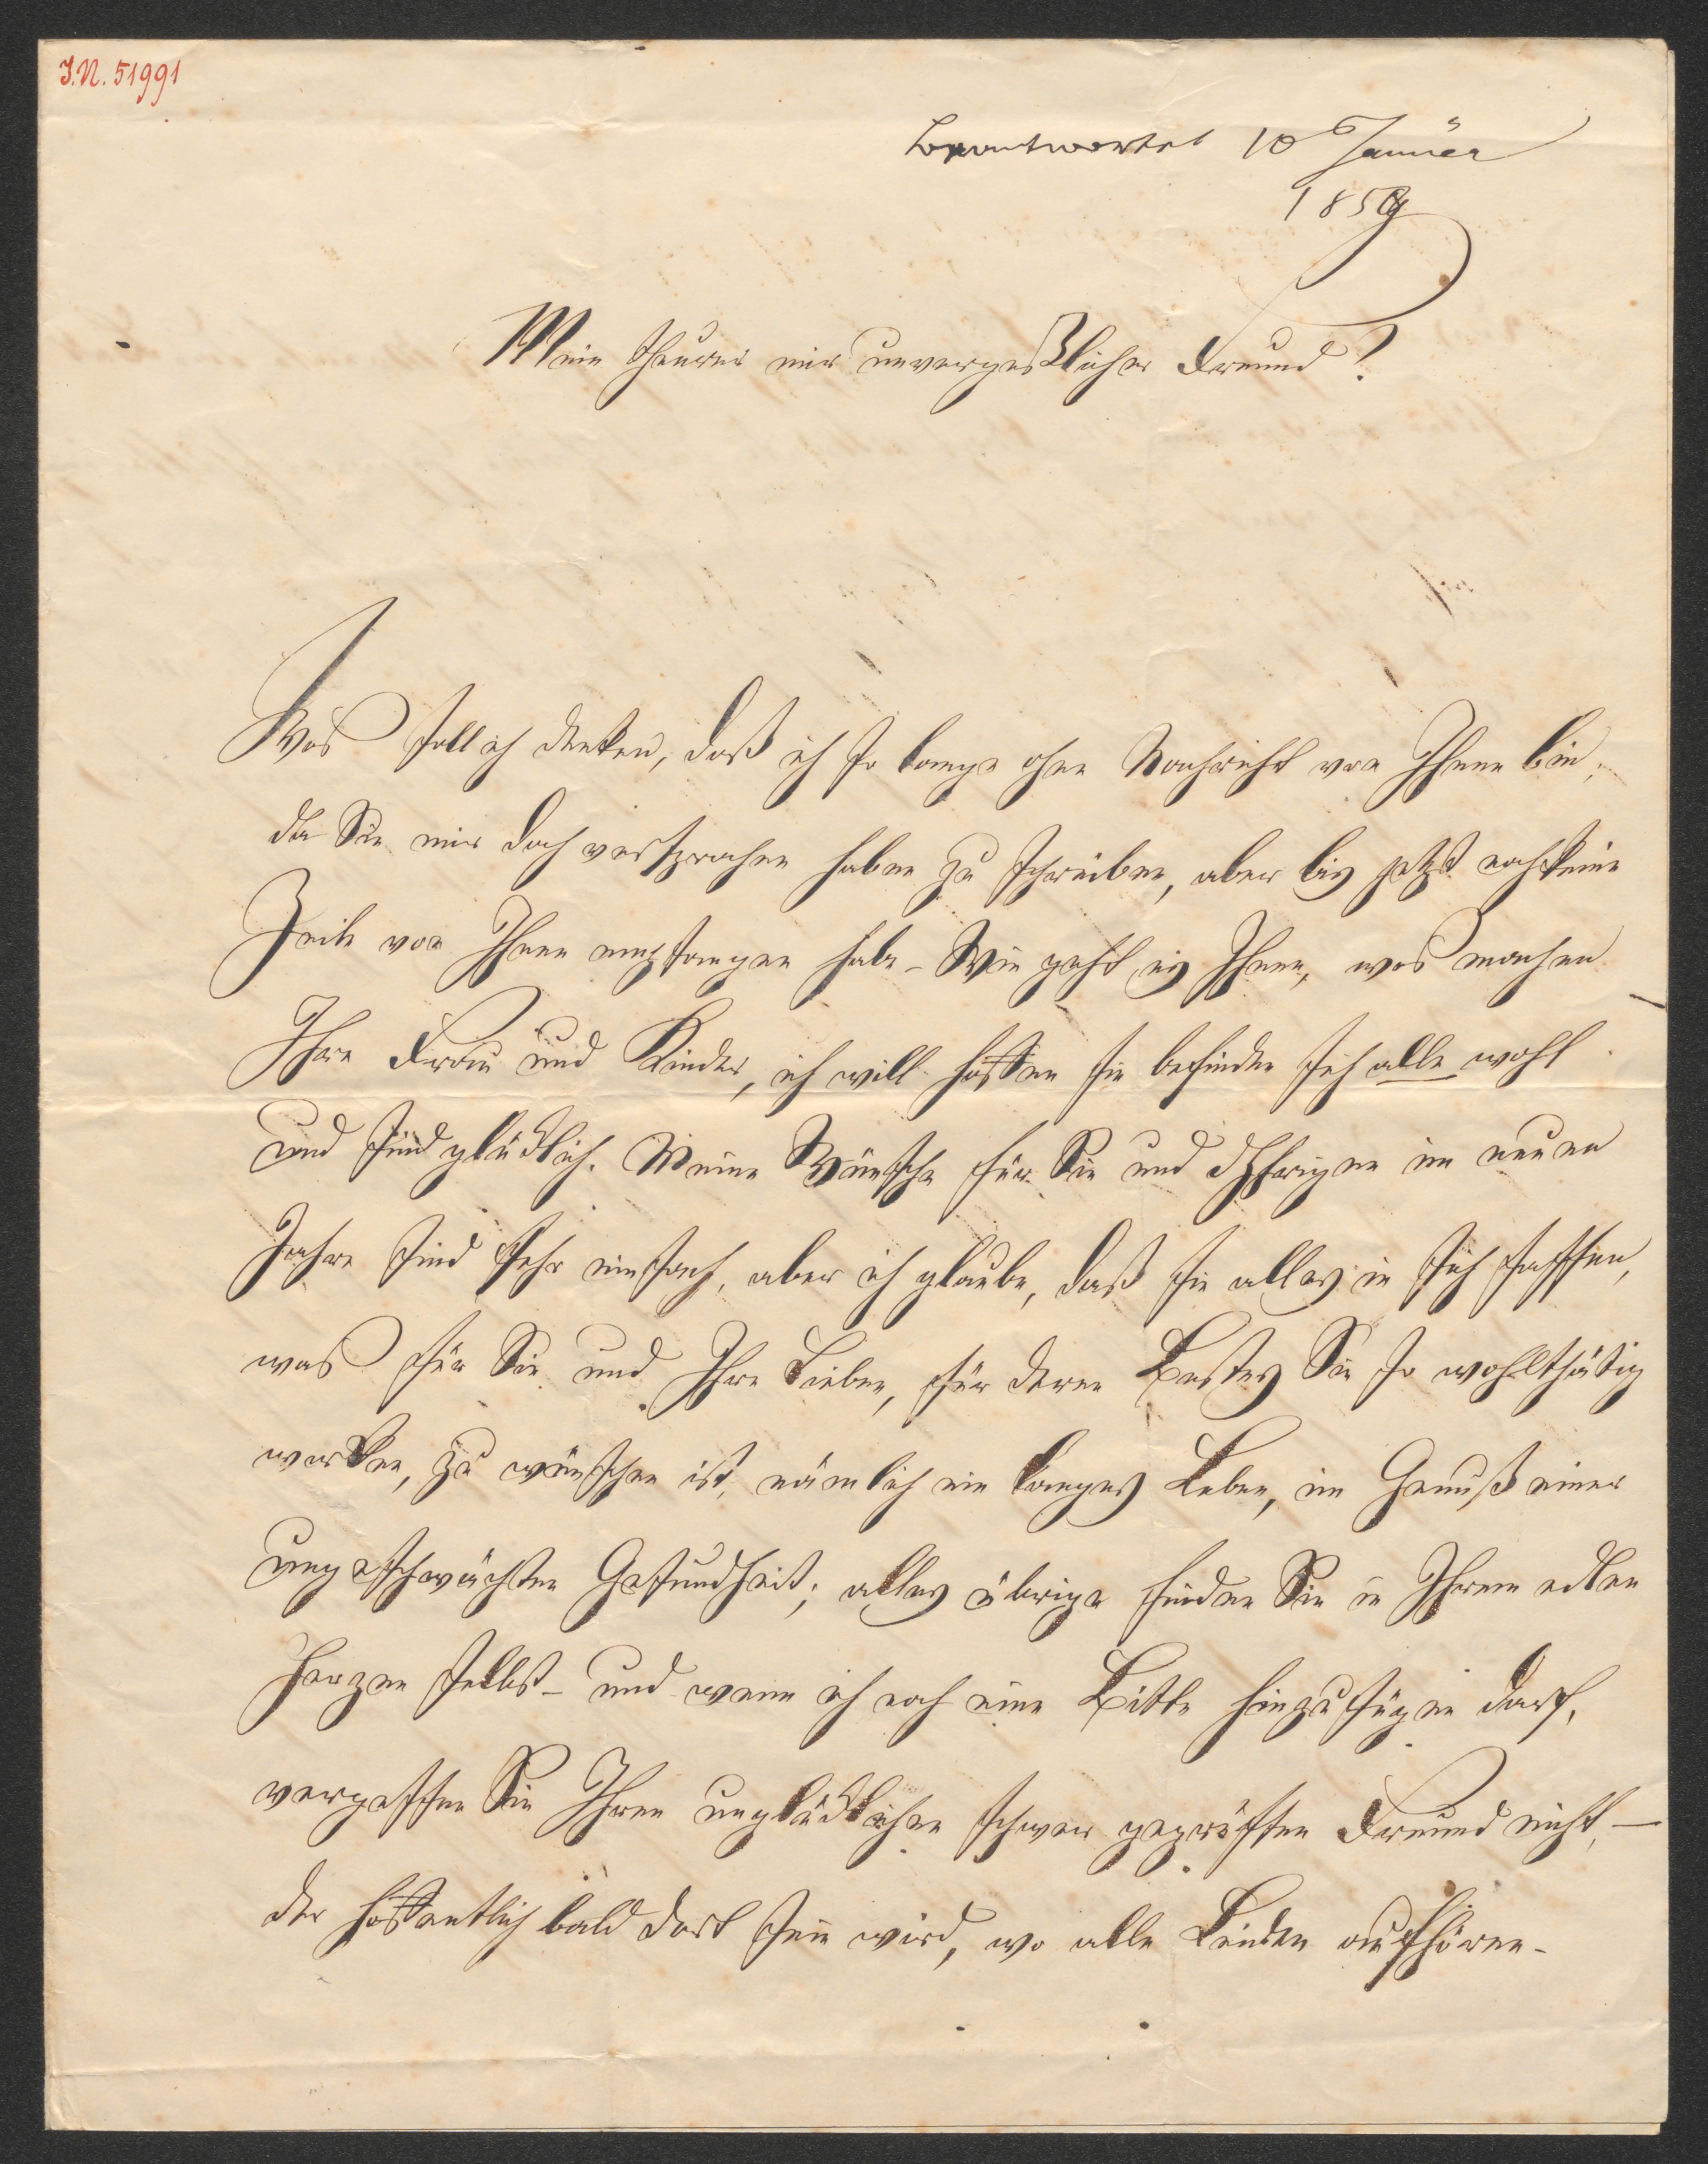 I.N. 51991
beantwortet 10 Januer
1859
Mein theurer mir unvergeßlicher Freund!
Was soll ich denken, daß ich so lange ohne Nachricht von Ihnen bin,
da Sie mir doch versprochen haben zu schreiben, aber bis jetzt noch keine
Zeile von Ihnen empfangen habe – Wie geht es Ihnen, was machen
Ihre Frau und Kinder, ich will hoffen sie befinden sich alle wohl
und sind glücklich. Meine Wünsche für Sie und Ihrigen im neuen
Jahre sind sehr einfach, aber ich glaube, daß sie alles in sich fassen,
was für Sie und Ihre Lieben, für deren Bestes Sie so wohlthätig
wirken, zu wünschen ist, nämlich ein langes Leben, im Genuß einer
ungeschwächten Gesundheit; alles übrige finden Sie in Ihrem edlen
Herzen selbst – und wenn ich noch eine Bitte hinzufügen darf,
vergessen Sie Ihren unglücklichen schwer geprüften Freund nicht, –
der hoffentlich bald dort sein wird, wo alle Leiden aufhören –